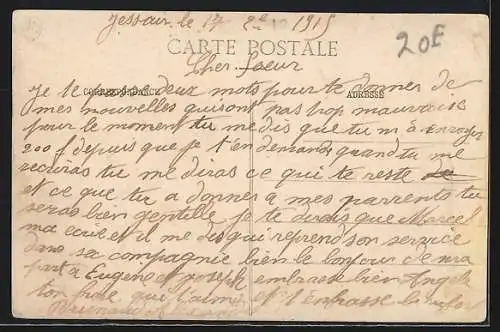 Jessain. le 17 2e 1915
20E
CARTE POSTALE
Cher. Soeur
CORRESPONDANCE
ADRESSE
Je te deux mots pour te donner de
mes nouvelles qui sont pas trop mauvaise
pour le moment tu me dis que tu m a envoyer
200 f depuis que je t'en demande quand tu me
recriras tu me diras ce qui te reste
et ce que tu a donner a mes parrents tu
seras bien gentille je te dirais que Marcel
ma ecrie et il me dis qui reprend son service
dans sa compagnie bien le bonjour de ma
part a Eugene et Joseph embrasse bien Angele
ton frere qui t'aime et t'embrasse